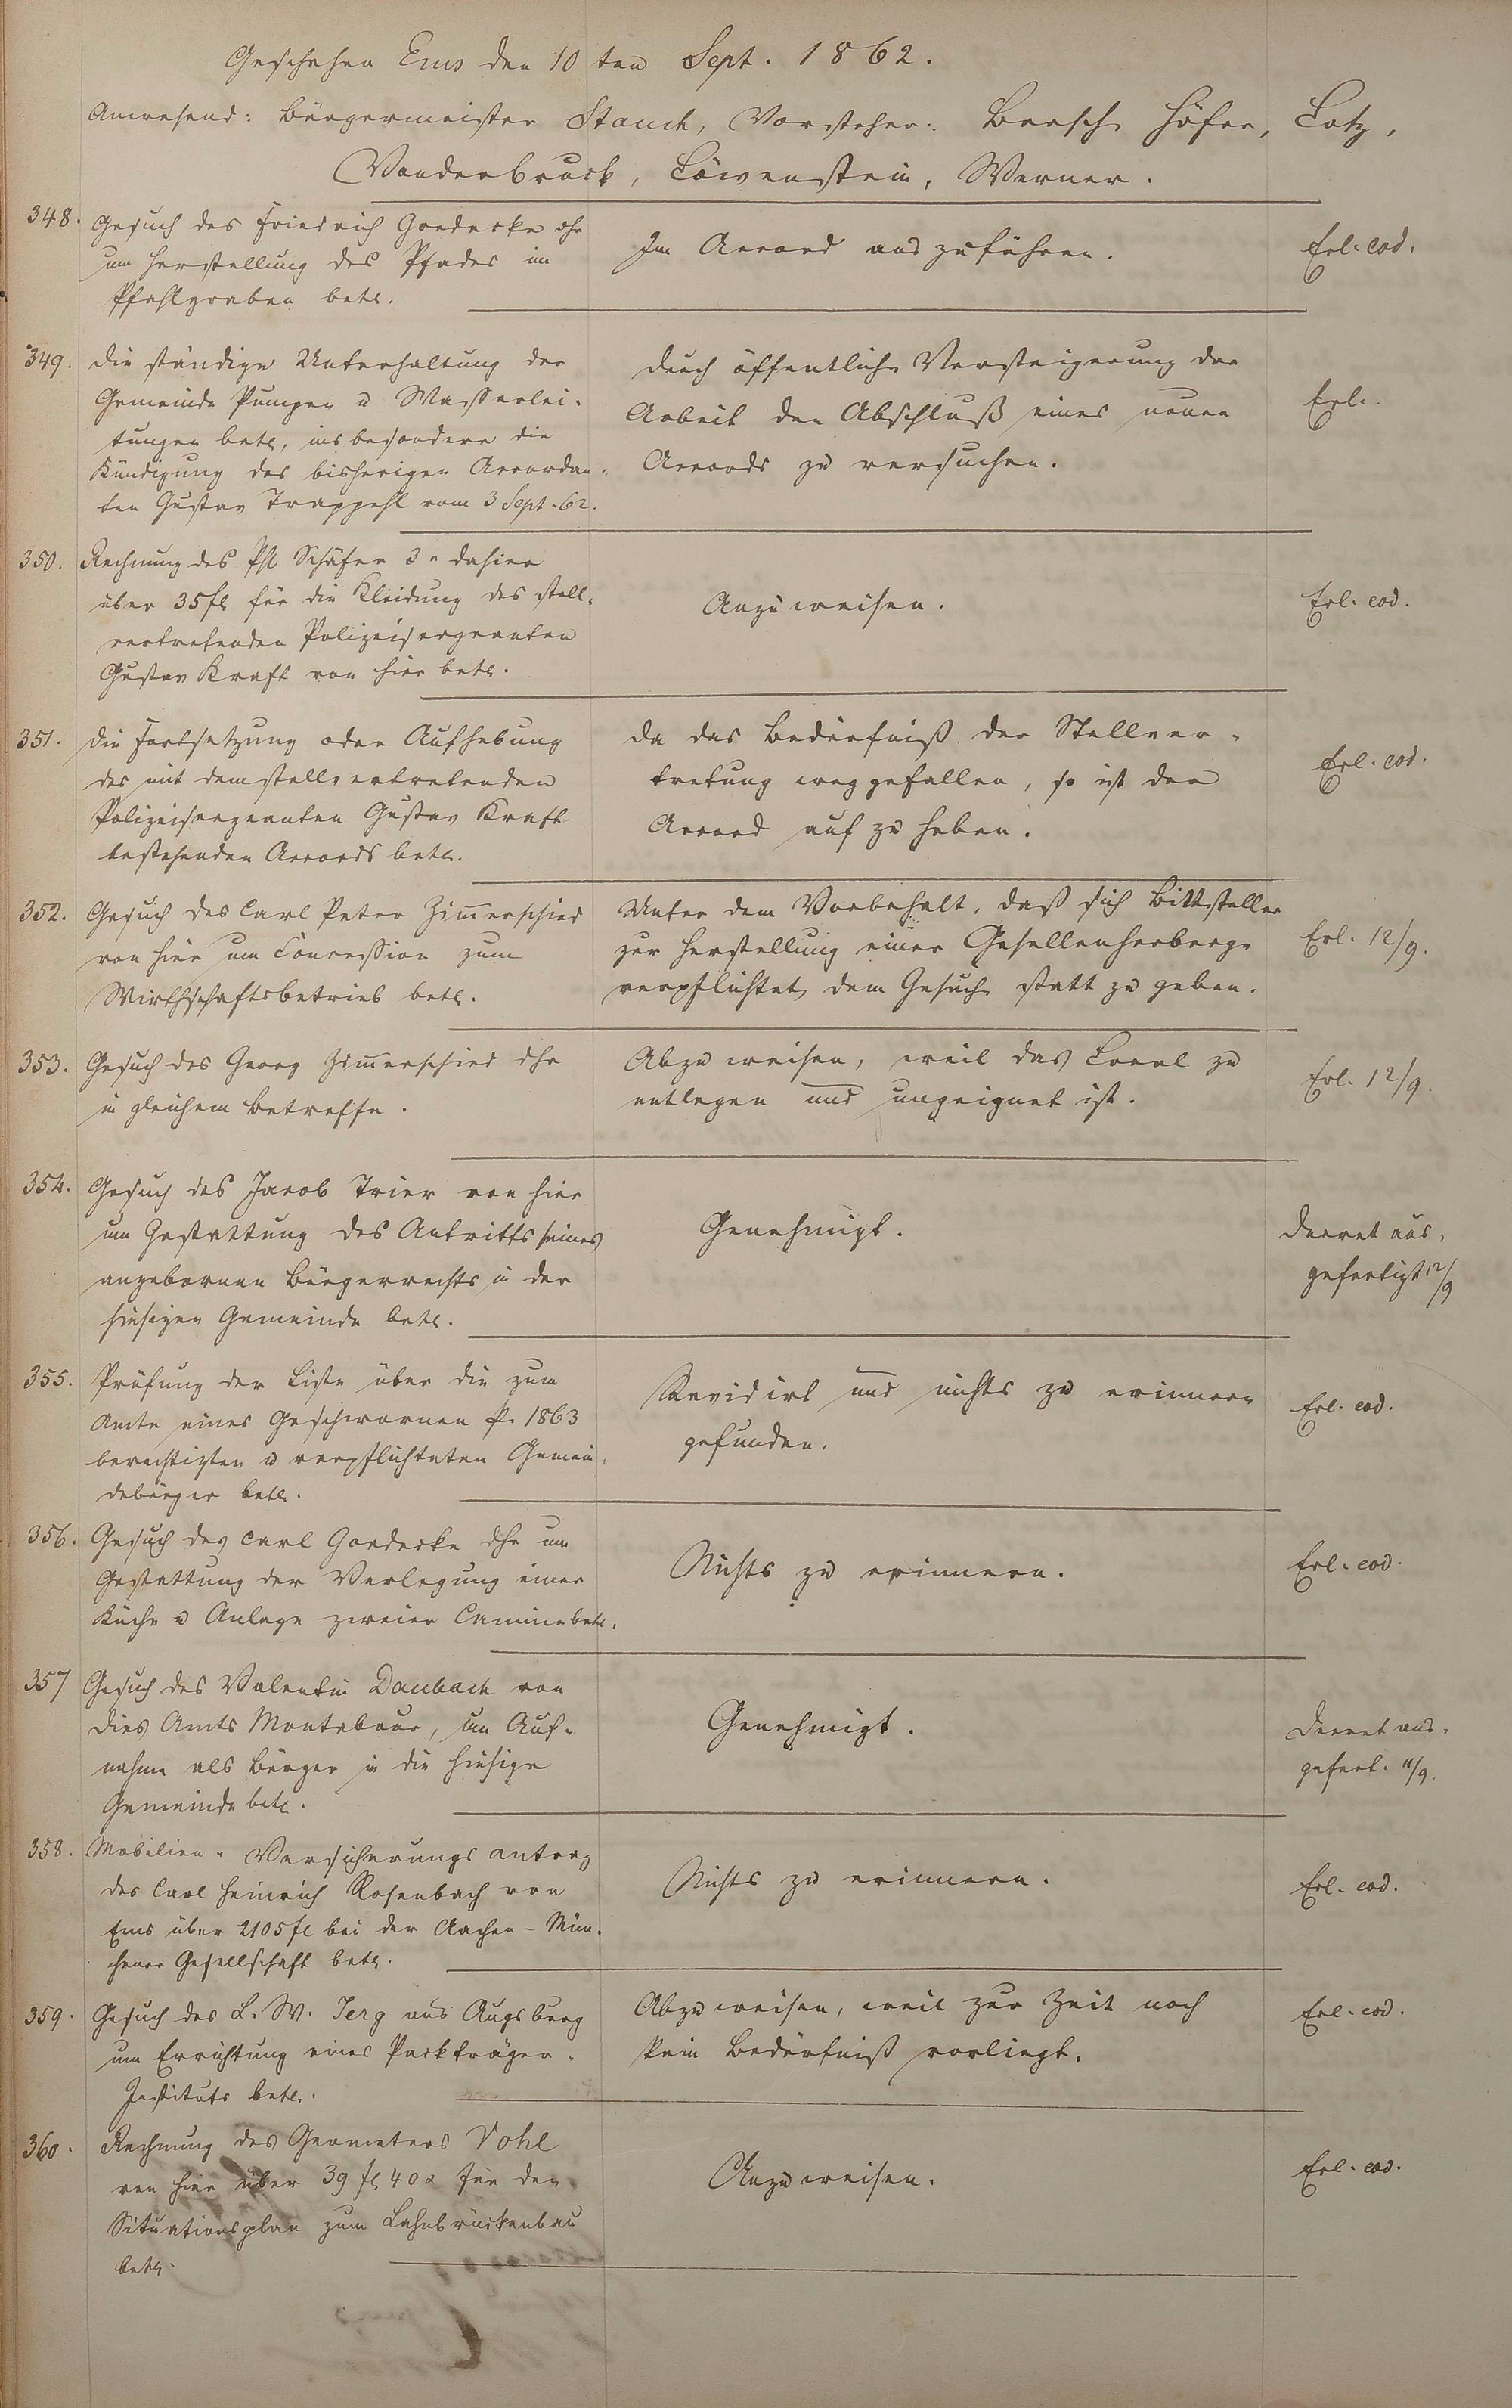 Geschehen Ems den 10ten Sept. 1862.
Anwesend: Bürgermeister Stauch, Vorsteher: Beesch, Höfer, Lotz,
Vonderbruck, Löwenstein, Werner.
348.
Gesuch des Friedrich Goedecke dhr
um Herstellung des Pfades im
Pfahlgraben betr.
Im Accord auszuführen.
Erl. eod.
349.
Die ständige Unterhaltung der
Gemeinde Pumpen u Wasserlei-
tungen betr, insbesondere die
Kündigung des bisherigen Accordan-
ten Gustav Trappehl vom 3 Sept. 62.
Durch öffentliche Versteigerung der
Arbeit den Abschluß eines neuen
Accords zu versuchen.
Erl.
350.
Rechnung des Ph Schäfer 3r dahier
über 35 fl für die Kleidung des stell-
vertretenden Polizeisergeanten
Gustav Kraft von hier betr.
Anzuweisen.
Erl. eod.
351.
Die Fortsetzung oder Aufhebung
des mit dem stellvertretenden
Polizeisergeanten Gustav Kraft
bestehenden Accords betr.
Da das Bedürfniß der Stellver-
tretung weggefallen, so ist der
Accord auf zu heben.
Erl. eod.
352.
Gesuch des Carl Peter Zim̄erschied
von hier um Concession zum
Wirthschaftsbetrieb betr.
Unter dem Vorbehalt, daß sich Bittsteller
zur Herstellung einer Gesellenherberge
verpflichtet, dem Gesuche statt zu geben.
Erl. 12/9.
353.
Gesuch des Georg Zim̄erschied dhr
in gleichem Betreffe.
Abzuweisen, weil das Local zu
entlegen und ungeeignet ist.
Erl. 12/9.
354.
Gesuch des Jacob Trier von hier
um Gestattung des Antritts seines
angebornen Bürgerrechts in der
hiesigen Gemeinde betr.
Genehmigt.
Decret aus-
gefertigt 12/9
355.
Prüfung der Liste über die zum
Amte eines Geschwornen p. 1863
berechtigten u verpflichteten Gemein-
debürger betr.
Revidirt und nichts zu erinnern
gefunden.
Erl. eod.
356.
Gesuch des Carl Goedecke dhr um
Gestattung der Verlegung einer
Küche u Anlage zweier Camine betr.
Nichts zu erinnern.
Erl. eod.
357
Gesuch des Valentin Daubach von
Dies Amts Montabaur, um Auf-
nahme als Bürger in die hiesige
Gemeinde betr.
Genehmigt.
Decret aus-
gefert. 11/9.
358.
Mobilien-Versicherungsantrag
des Carl Heinrich Rosenbach von
Ems über 2105 fl bei der Aachen-Mün-
chener Gesellschaft betr.
Nichts zu erinnern.
Erl. eod.
359.
Gesuch des L. W. Jerg aus Augsburg
um Errichtung eines Packträger-
Instituts betr.
Abzuweisen, weil zur Zeit noch
kein Bedürfniß vorliegt.
Erl. eod.
360.
Rechnung des Geometers Vohl
von hier über 39 fl 40 x für den
Situationsplan zum Lahnbrückenbau
betr.
Anzuweisen.
Erl. eod.